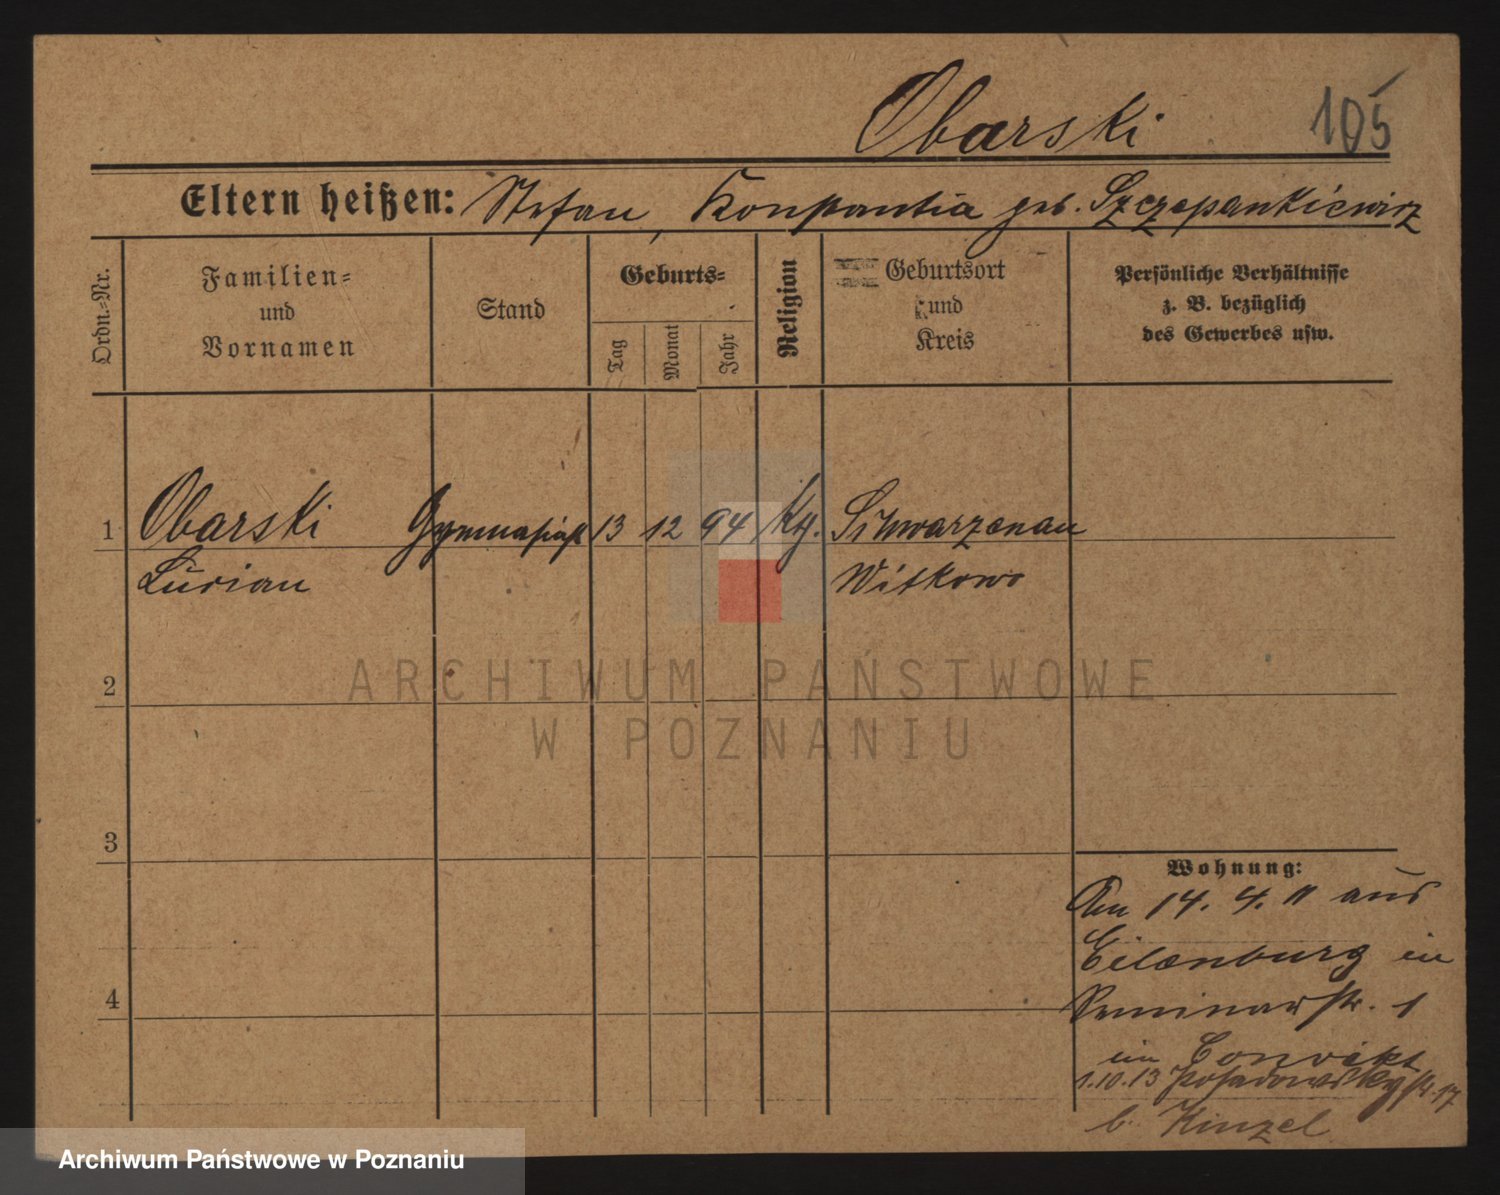 Obarski 105
Eltern heißen: Stefan, Konstantia geb. Szczepankiewicz
Ordn.=Nr.
Familien=
und
Vornamen
Stand
Geburts=
Tag
Monat
Jahr
Religion
Geburtsort
und
Kreis
Persönliche Verhältnisse
z. B. bezüglich
des Gewerbes usw.
1 Obarski Gymnasiast 13 12 94 kth. Schwarzenau
Lucian Witkowo
2
3
4
Wohnung:
Am 14. 4. 11 aus
Eilenburg in
Seminarstr. 1
im Convikt
1.10.13 Posadowskystr. 17
b. Kinzel
ARCHIWUM PAŃSTWOWE
W POZNANIU
Archiwum Państwowe w Poznaniu